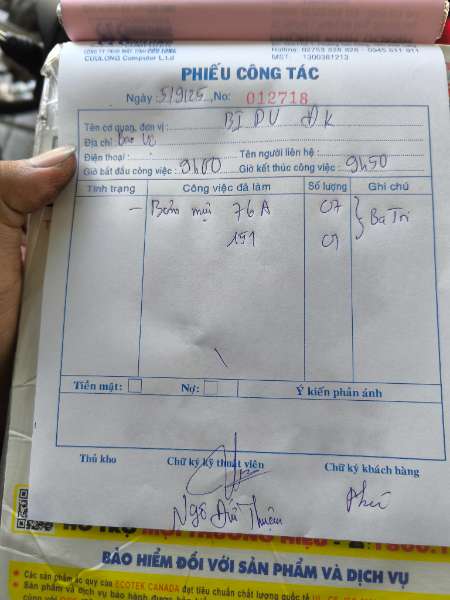 CÔNG TY TNHH MÁY TÍNH CỬU LONG
CUULONG Computer L.t.d
Hotline: 02753 828 828 - 0945 611 911
MST: 1300361213
PHIẾU CÔNG TÁC
Ngày: 5/9/25, No: 012718
Tên cơ quan, đơn vị: BIDV ĐK
Địa chỉ
Điện thoại: Tên người liên hệ:
Giờ bắt đầu công việc: 9h00 Giờ kết thúc công việc: 9h50
Tình trạng Công việc đã làm Số lượng Ghi chú
- Bơm mực 76A 07 Ba Tri
151 01
Tiền mặt: Nợ: Ý kiến phản ánh
Thủ kho Chữ ký kỹ thuật viên Chữ ký khách hàng
Ngô Đức Thuận Phú
HỖ TRỢ MỌI THƯƠNG HIỆU - 1800.1
BẢO HIỂM ĐỐI VỚI SẢN PHẨM VÀ DỊCH VỤ
Các sản phẩm ắc quy của ECOTEK CANADA đạt tiêu chuẩn chất lượng quốc tế UL, CE, ISO
Sản phẩm và dịch vụ bảo hành được bảo
cùng với